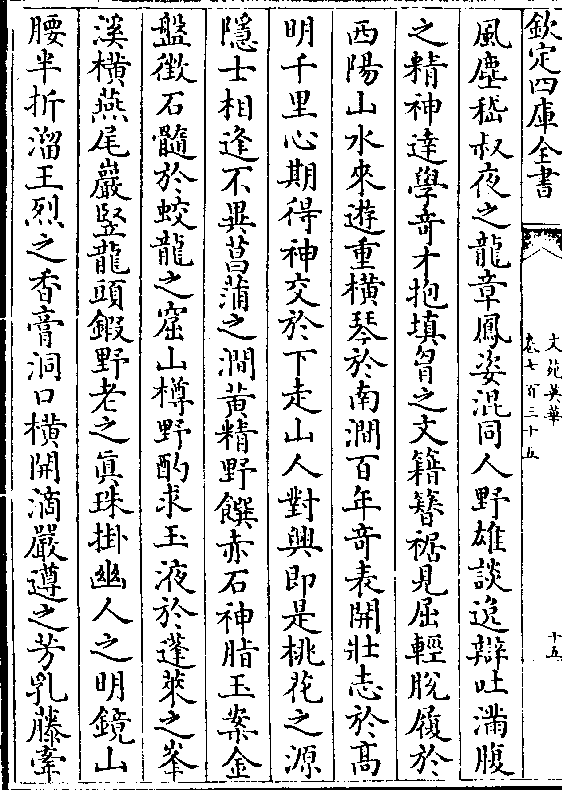 欽定四庫全書
文苑英華
卷七百三十五
十五
風塵嵇叔夜之龍章鳳姿混同人野雄談逸辯吐滿腹
之精神達學奇才抱填胷之文籍簪裾見屈輕脫履於
西陽山水來遊重橫琴於南澗百年奇表開壯志於高
明千里心期得神交於下走山人對興即是桃花之源
隱士相逢不異菖蒲之澗黄精野饌赤石神脂玉案金
盤徴石髓於蛟龍之窟山樽野酌求玉液於蓬萊之峯
溪橫燕尾巖竪龍頭鍜野老之真珠掛幽人之明鏡山
腰半折溜王烈之香膏洞口橫開滴嚴遵之芳乳藤牽